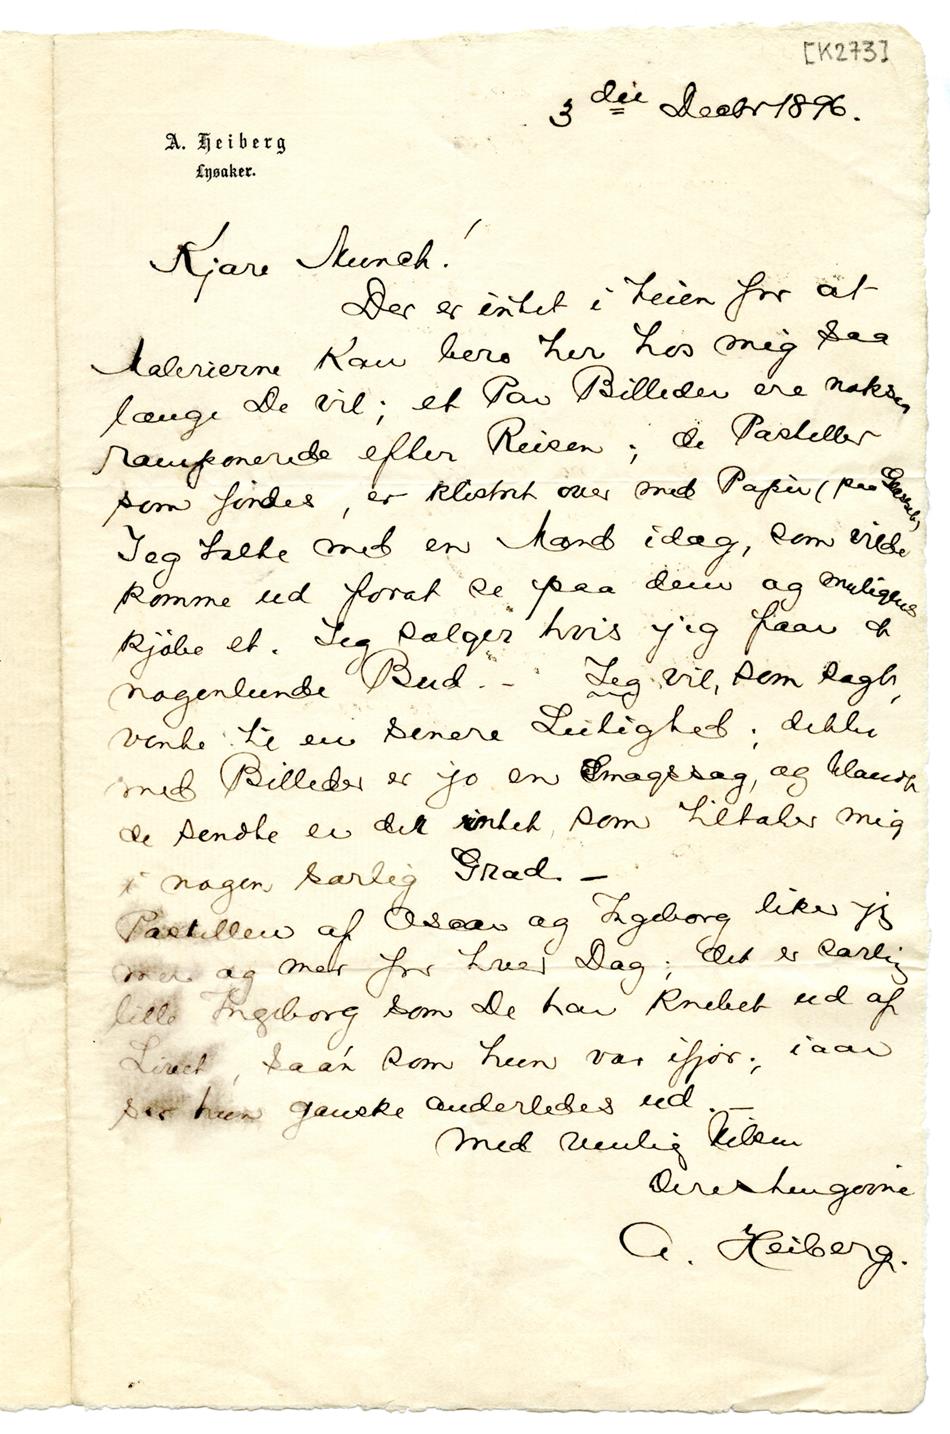 [K273]
3 die Decbr 1896.
A. Heiberg
Lysaker.
Kjære Munch!
Der er intet i Veien for at
Malerierne kan bero her hos mig saa
længe De vil; et Par Billeder ere noksaa
ramponerede efter Reisen; de Pasteller
som fandtes, er klistret over med Papir (paa Glasset)
Jeg talte med en Mand idag, som vilde
komme ud forat se paa dem og muligens
kjøbe et. Jeg sælger hvis jeg faar et
nogenlunde Bud. – Jeg vil, som sagt,
vente til en senere Leilighed; dette
med Billeder er jo en Smagssag, og blandt
de sendte er der intet, som tiltaler mig
i nogen særlig Grad. –
Pastellen af Oscar og Ingeborg liker jeg
mer og mer for hver Dag; det er særlig
lille Ingeborg som De har knebet ud af
Livet, saan som hun var ifjor; iaar
ser hun ganske anderledes ud. –
Med venlig Hilsen
Deres hengivne
A. Heiberg.